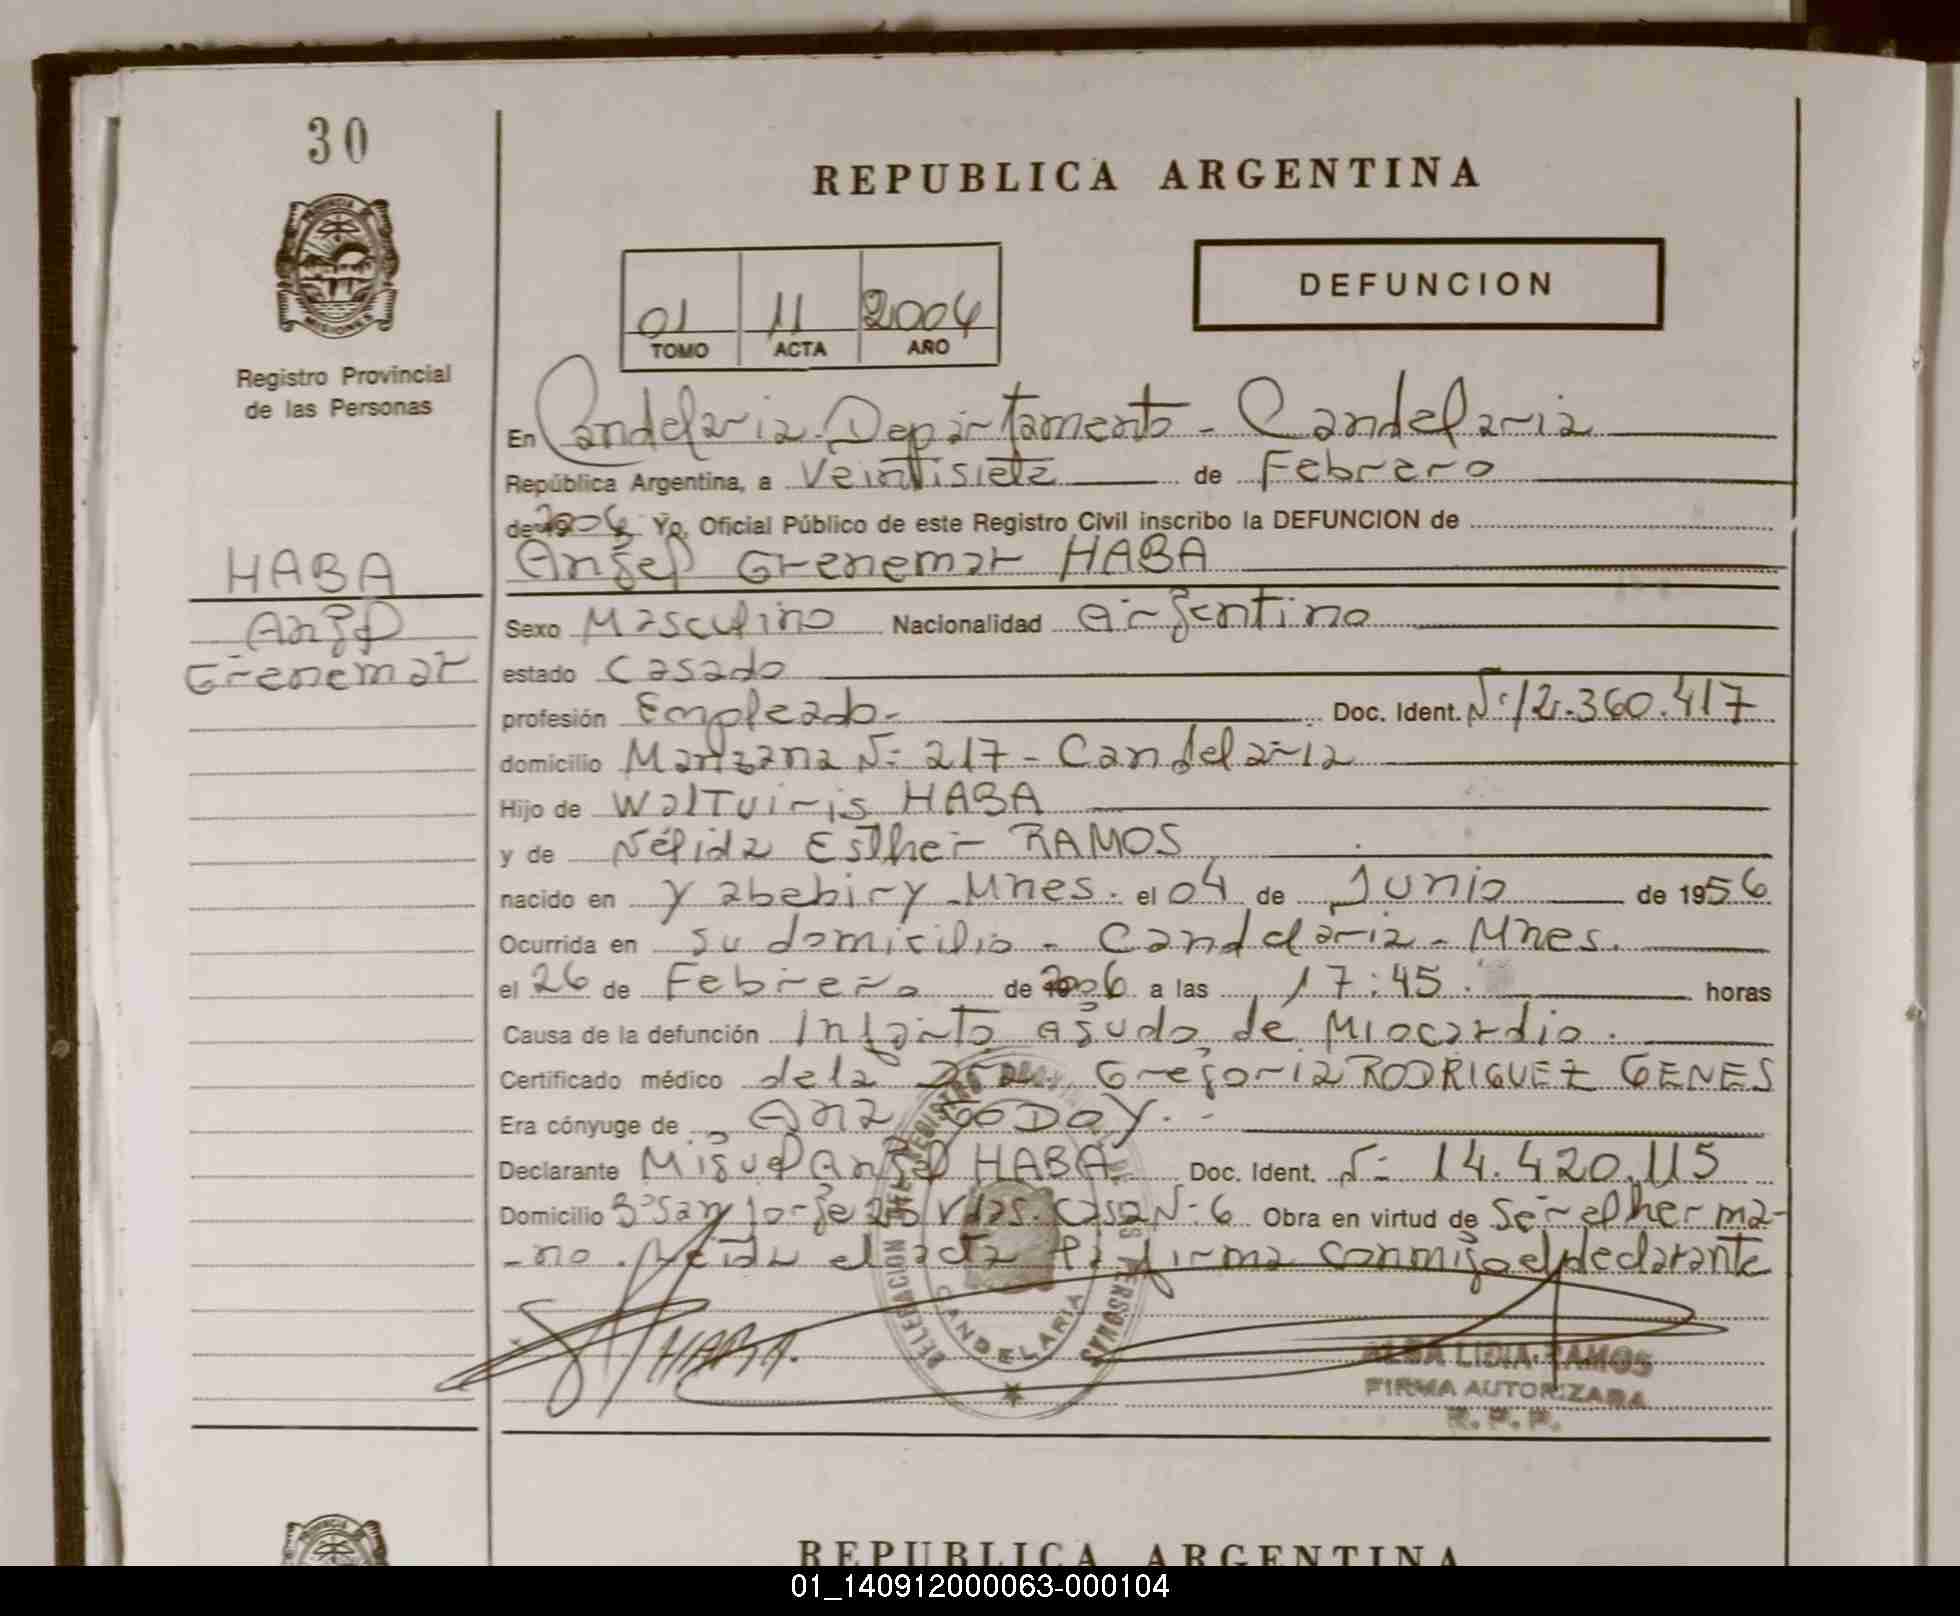 30
REPUBLICA ARGENTINA
PROVINCIA DE
MISIONES
DEFUNCION
01 11 2004
TOMO ACTA AÑO
Registro Provincial
de las Personas
En Candelaria-Departamento - Candelaria
República Argentina, a Veintisiete de Febrero
de Yo, Oficial Público de este Registro Civil inscribo la DEFUNCION de
HABA
Angel Grenemar HABA
Angel
Grenemar
Sexo Masculino Nacionalidad Argentino
estado Casado
profesión Empleado.- Doc. Ident. Nº 12.360.417
domicilio Manzana Nº 217 - Candelaria
Hijo de Waltuiris HABA
y de Nélida Esther RAMOS
nacido en Yabebiry - Mnes. el 04 de Junio de 1956
Ocurrida en su domicilio - Candelaria - Mnes.
el 26 de Febrero de a las 17:45. horas
Causa de la defunción Infarto agudo de Miocardio.
Certificado médico de la Dra. Gregoria RODRIGUEZ GENES
Era cónyuge de Ana GODOY.-
Declarante Miguel Angel HABA Doc. Ident. Nº 14.420.115
Domicilio Bº San Jorge Vdas. casa Nº 6 Obra en virtud de Ser el herma-
-no. Leída el acta la firma conmigo el declarante
HABA.
DELEGACION DEL REGISTRO DE LAS PERSONAS
CANDELARIA
ALBA LIDIA RAMOS
FIRMA AUTORIZADA
R. P. P.
REPUBLICA ARGENTINA
01_140912000063-000104